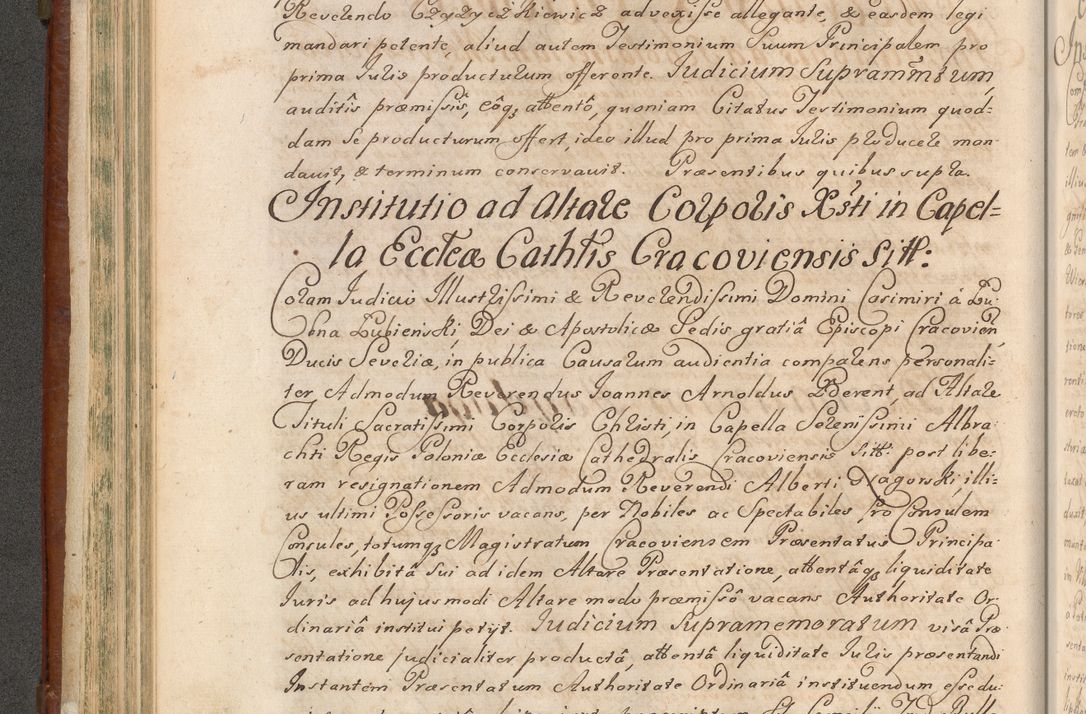 Reverendo Czyzyczkiewicz advexisse allegante, & easdem legi
mandari petente, aliud autem Testimonium Suum Principalem pro
prima Iuris producturum offerente. Iudicium Supramm̃tum,
auditis præmissis, eôq; attentô, quoniam Citatus Testimonium quod-
dam se producturum offert, ideo illud pro prima Iuris producere man-
davit, & terminum conservavit. Præsentibus quibus supra.
Institutio ad Altare Corporis Xsti in Capel=
la Eccleæ Cathlis Cracoviensis sitt:
Coram Iudicio Illustrissimi & Reverendissimi Domini Casimiri á Łu-
bna Łubieński, Dei & Apostolicæ Sedis gratiâ Episcopi Cracovien
Ducis Severiæ, in publica Causarum audientia comparens personali-
ter Admodum Reverendus Ioannes Arnoldus Ederent, ad Altare
Tituli Sacratissimi Corporis Christi, in Capella Serenissimi Albra-
chti Regis Poloniæ Ecclesiæ Cathedralis Cracoviensis sitt: post libe-
ram resignationem Admodum Reverendi Alberti Zagorski, illi-
us ultimi Possessoris vacans, per Nobiles ac Spectabiles, Pro Consulem
Consules, totumq; Magistratum Cracoviensem Præsentatus Principa-
lis, exhibitâ sui ad idem Altare Præsentatione, attentâq; liquiditate
Iuris ad hujusmodi Altare modo præmissô vacans Authoritate Or-
dinariâ institui petyt. Iudicium Supramemoratum visâ Præ-
sentatione judicialiter productâ, attentâ liquiditate Iuris præsentandi
Instantem Præsentatum Authoritate Ordinariâ instituendum esse du-